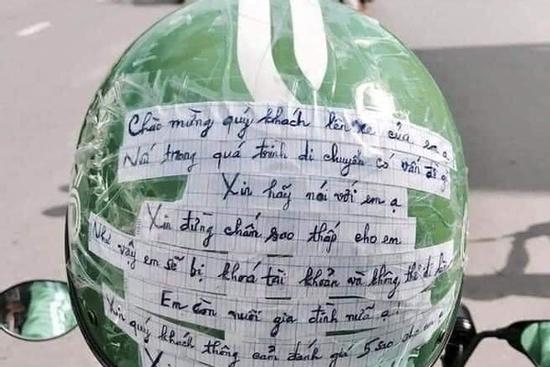 Chào mừng quý khách lên xe của em ạ
Nếu trong quá trình di chuyển có vấn đề gì
Xin hãy nói với em ạ
Xin đừng chấm sao thấp cho em
Như vậy em sẽ bị khoá tài khoản và không thể đi
Em còn nuôi gia đình nữa ạ!
Xin quý khách thông cảm đánh giá 5 sao cho em
Xin